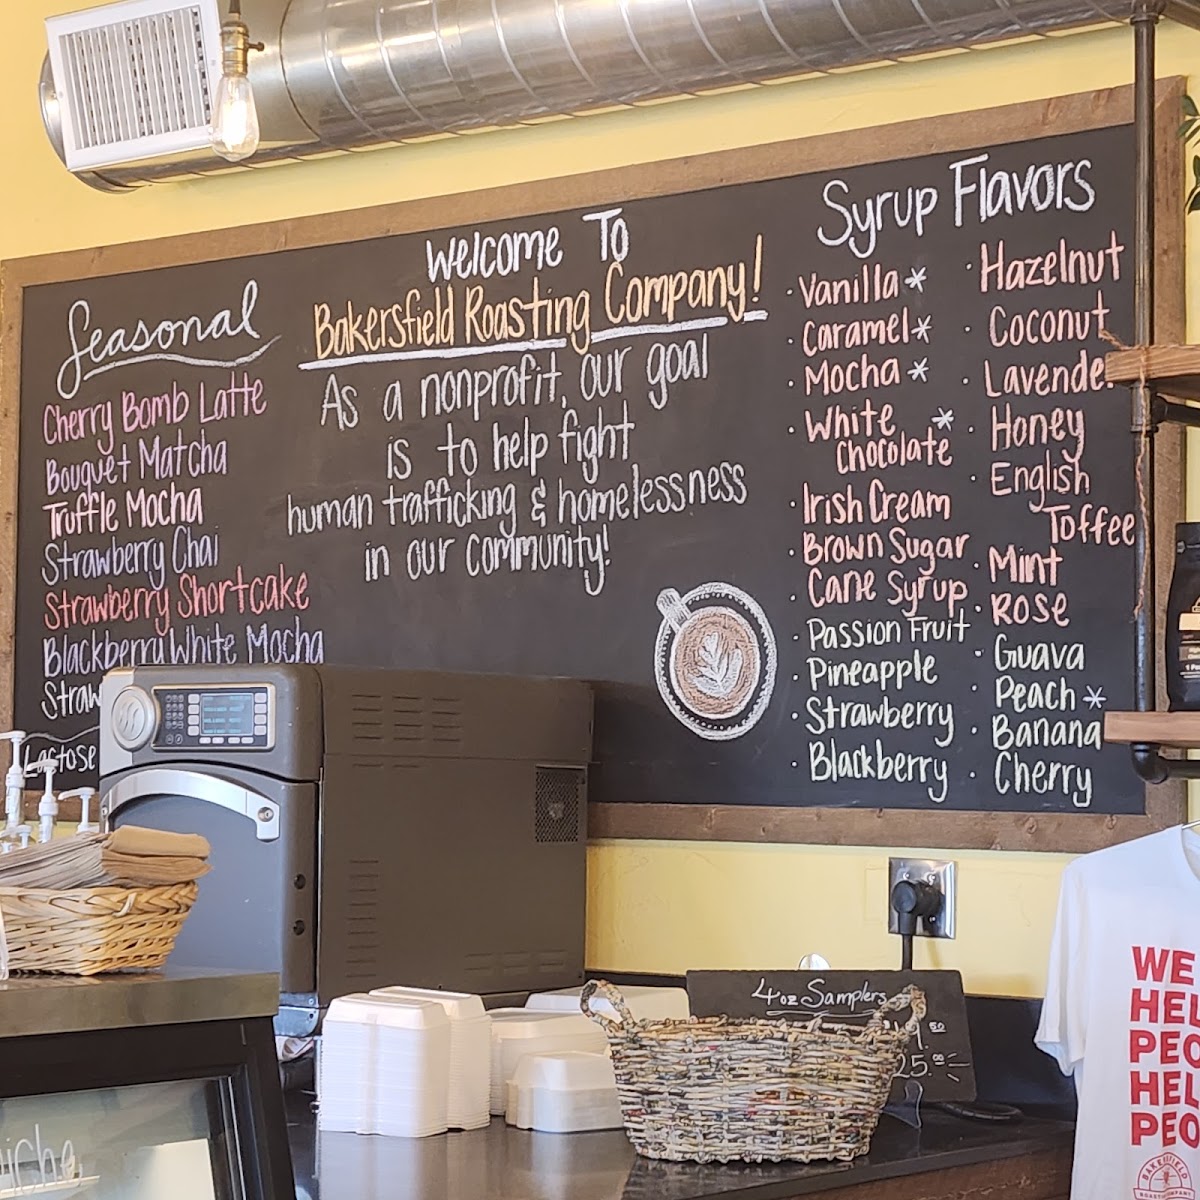 Seasonal
Cherry Bomb Latte
Bouquet Matcha
Truffle Mocha
Strawberry Chai
Strawberry Shortcake
Blackberry White Mocha
Lactose
Welcome To
Bakersfield Roasting Company!
As a nonprofit, our goal
is to help fight
human trafficking & homelessness
in our community!
Syrup Flavors
· Vanilla *
· Caramel *
· Mocha *
· White *
Chocolate
· Irish Cream
· Brown Sugar
· Cane Syrup
· Passion Fruit
· Pineapple
· Strawberry
· Blackberry
· Hazelnut
· Coconut
· Lavender
· Honey
· English
Toffee
· Mint
· Rose
· Guava
· Peach *
· Banana
· Cherry
4oz Samplers
25.00
WE
HEL
PEO
HEL
PEO
BAKERSFIELD